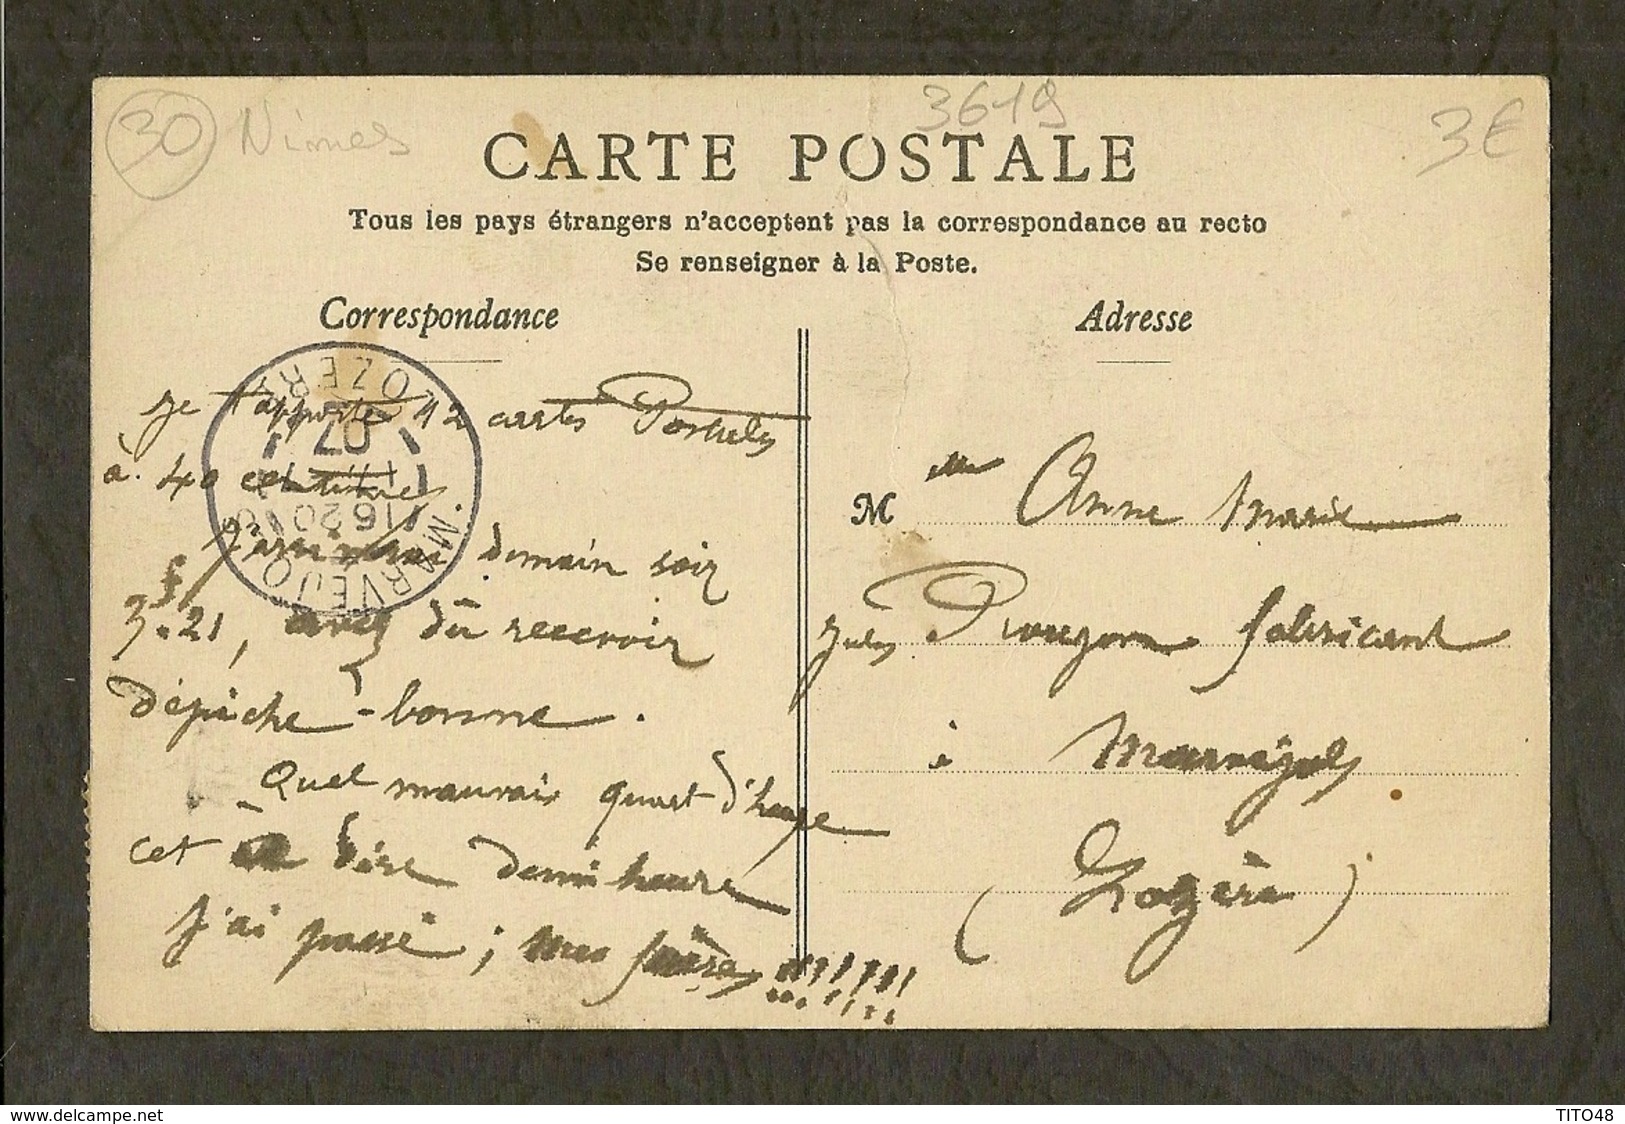 30 Nimes
3619
3€
CARTE POSTALE
Tous les pays étrangers n'acceptent pas la correspondance au recto
Se renseigner à la Poste.
Correspondance
Adresse
MARVEJOLS
LOZERE
16 20
07
Je t'apporte 12 cartes Postales
à 40 centimes.
J'arriverai demain soir
3.21, avez dû recevoir
dépêche - bonne.
Quel mauvais quart d'heure
cet dire demi heure
J'ai passé; mes frères !!!!!!!
M elle Anne Marie
Jules Prouzon fabricant
à Marvejols
(Lozère)
www.delcampe.net
TITO48